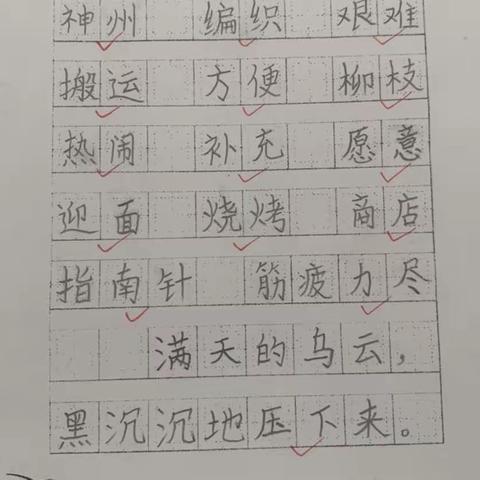 神州 编织 艰难
搬运 方便 柳枝
热闹 补充 愿意
迎面 烧烤 商店
指南针 筋疲力尽
满天的乌云，
黑沉沉地压下来。